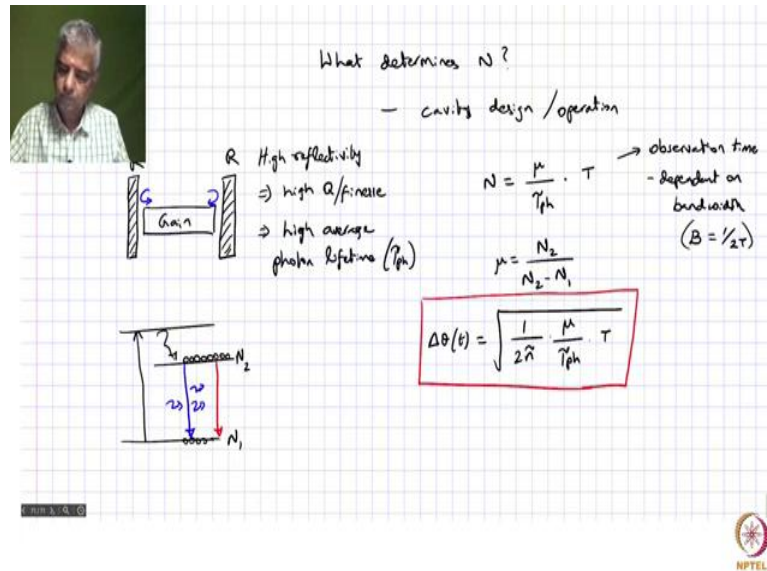 What determines N?
- cavity design/operation
R
High reflectivity
⇒ high Q/finesse
⇒ high average
photon lifetime (τph)
Gain
N = μ/τph · T
→ observation time
- dependent on
bandwidth
(B = 1/2T)
μ = N2/(N2 - N1)
Δθ(t) = √(1/2n̄ · μ/τph · T)
N2
N1
NPTEL